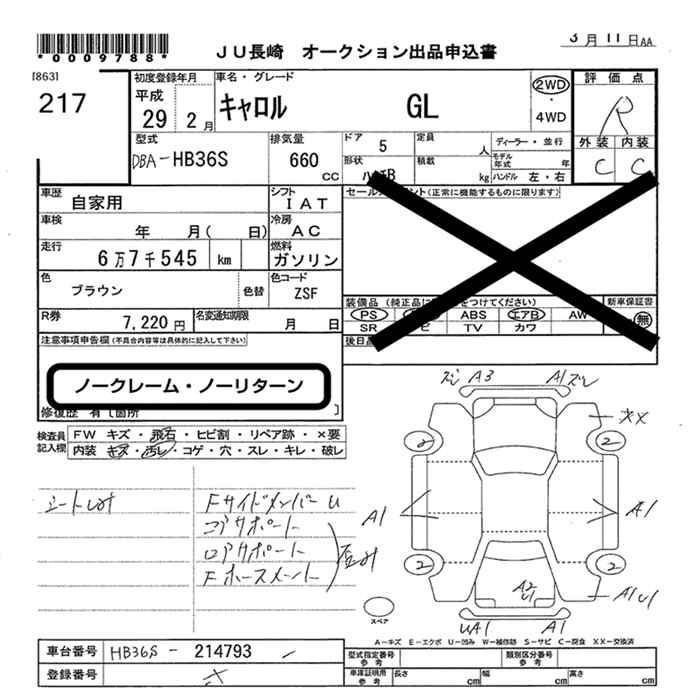 *0009788*
JU長崎 オークション出品申込書
3月11日AA
[863]
217
初度登録年月
平成
29 2月
車名・グレード
キャロル GL
2WD
・
4WD
評価点
R
外装 内装
C C
型式
DBA-HB36S
排気量
660 CC
ドア
5
定員
人
ディーラー・並行
モデル年式 年
形状
積載
kg
ハンドル 左・右
車歴
自家用
シフト
IAT
車検
年 月( 日)
冷房
AC
走行
6万7千545 km
燃料
ガソリン
色
ブラウン
色替
色コード
ZSF
R券
7,220円
名変通知期限
月 日
(正常に機能するものに限ります)
装備品(純正品に をつけてください)
新車保証書
PS ABS エアB AW
無
SR TV カワ
後日
注意事項申告欄(不具合内容等は具体的に記入して下さい)
ノークレーム・ノーリターン
修復歴 有[箇所 ]
検査員記入欄
FW キズ・飛石・ヒビ割・リペア跡・×要
内装 キズ・汚レ・コゲ・穴・スレ・キレ・破レ
Fサイドメンバー U
コアサポート
ロアサポート
ズレ A3 A1 ズレ
XX
2 2
A1 A1
2 2
A2
U1
A1 U1
スペア
UA1 A1
A-キズ E-エクボ U-凹み W-補修跡 S-サビ C-腐食 XX-交換済
車台番号 HB36S - 214793
登録番号
型式指定番号
参考
類別区分番号
参考
車庫証明用
参考
長さ cm 幅 cm 高さ cm